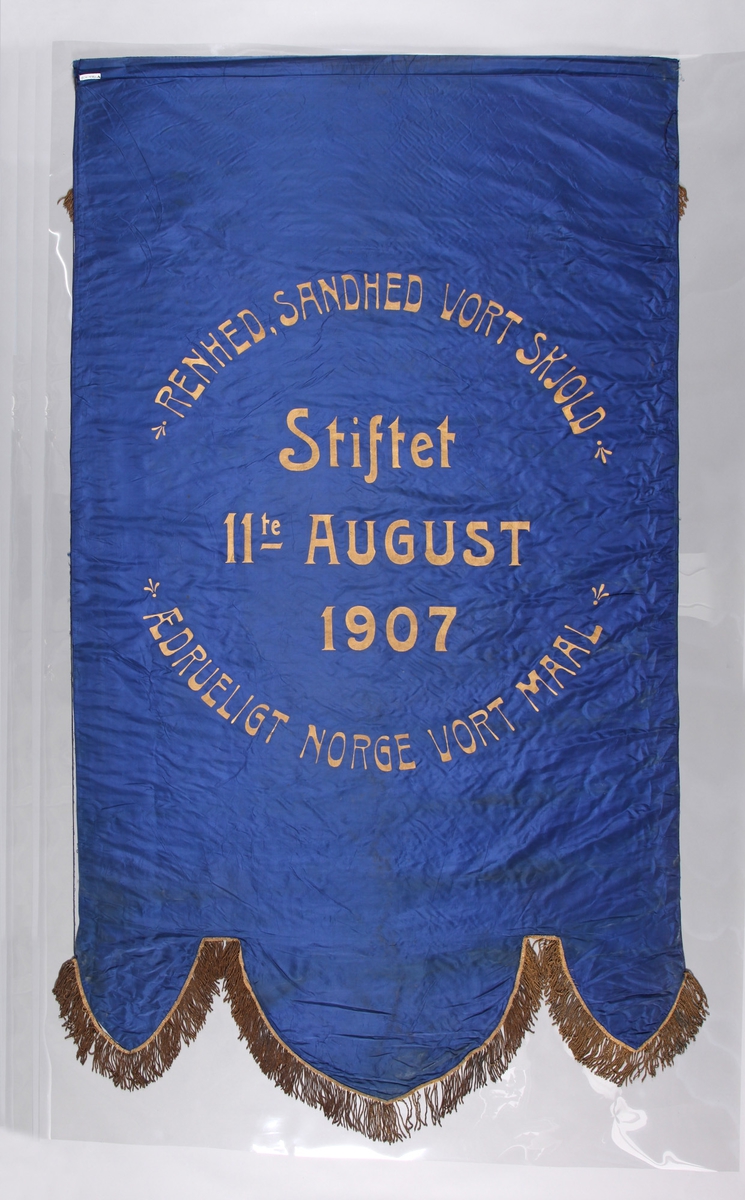 RENHED, SANDHED VORT SKJOLD
Stiftet
11te AUGUST
1907
ÆDRUELIGT NORGE VORT MAAL